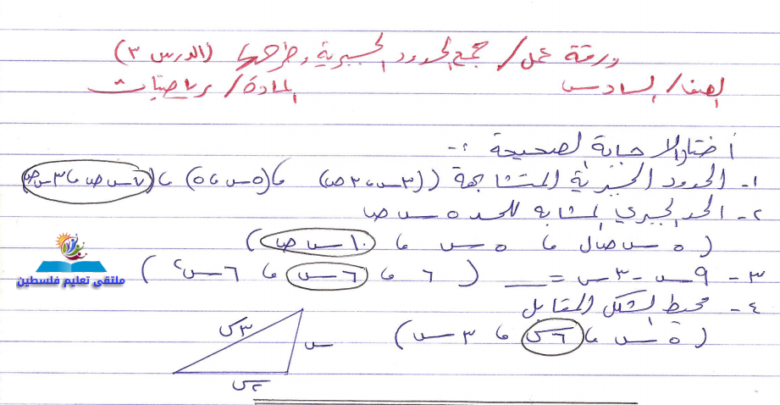 ورقة عمل / جمع الحدود الجبرية وطرحها (الدرس ٣)
الصف / السادس المادة / رياضيات
أختار الإجابة الصحيحة :-
١- الحدود الجبرية المتشابهة ((٣س، ٢ص) ، (٥س، ٥) ، (٧س ص، ٣س ص)
٢- الحد الجبري المشابه للحد ٥ س ص
(٥ س ص ل ، ٥ س ، ١٠ س ص)
٣- ٩س - ٣س = __ (٦ ، ٦س ، ٦س²)
٤- محيط الشكل المقابل
(٥س ، ٦س ، ٣س)
٣س
س
٢س
ملتقى تعليم فلسطين